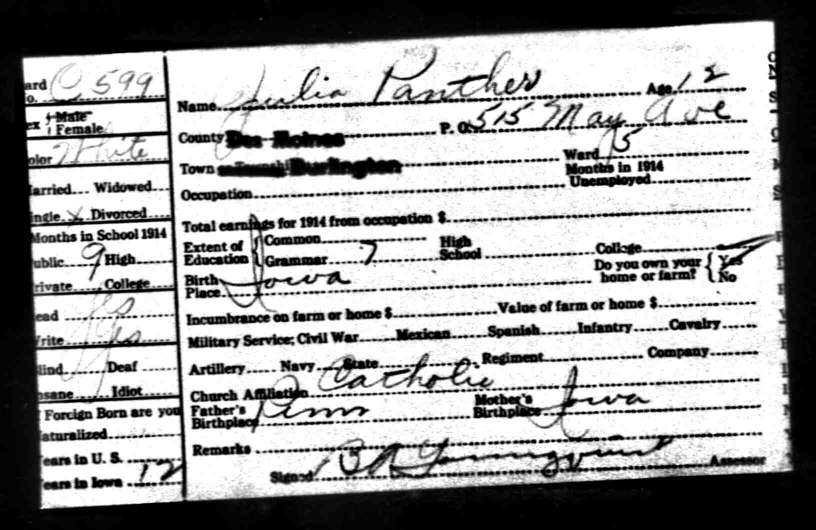 ard C 599
o.
ex Male
Female
olor White
arried Widowed
ingle X Divorced
Months in School 1914
ublic 9 High
rivate College
ead yes
rite yes
lind Deaf
nsane Idiot
Foreign Born are you
aturalized
ears in U. S.
ears in Iowa 12
Name Julia Panther Age 12
County Des Moines P. O. 515 May Ave
Town Burlington Ward 5
Occupation Months in 1914 Unemployed
Total earnings for 1914 from occupation $
Extent of Education Common High School College
Grammar 7
Birth Place Iowa Do you own your home or farm? Yes No
Incumbrance on farm or home $ Value of farm or home $
Military Service; Civil War Mexican Spanish Infantry Cavalry
Artillery Navy State Regiment Company
Church Affiliation Catholic
Father's Birthplace Penn Mother's Birthplace Iowa
Remarks
Signed Assessor